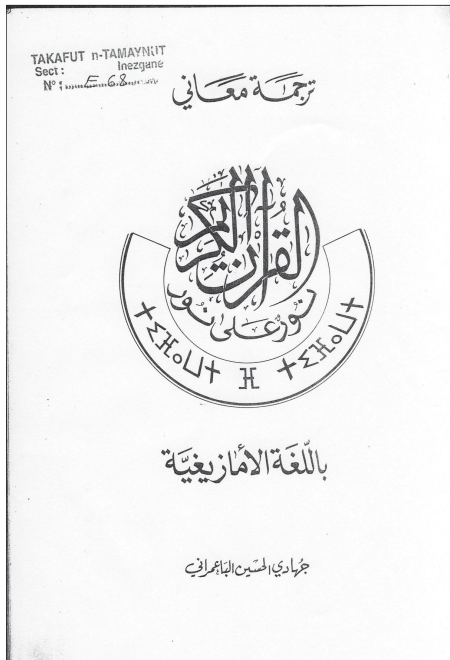 TAKAFUT n-TAMAYNUT
Sect : Inezgane
N° : E-68
ترجمة معاني
القرآن الكريم
نور على نور
ⵜⵉⴼⴰⵡⵜ ⴼ ⵜⵉⴼⴰⵡⵜ
باللغة الأمازيغية
جهادي الحسين الباعمراني